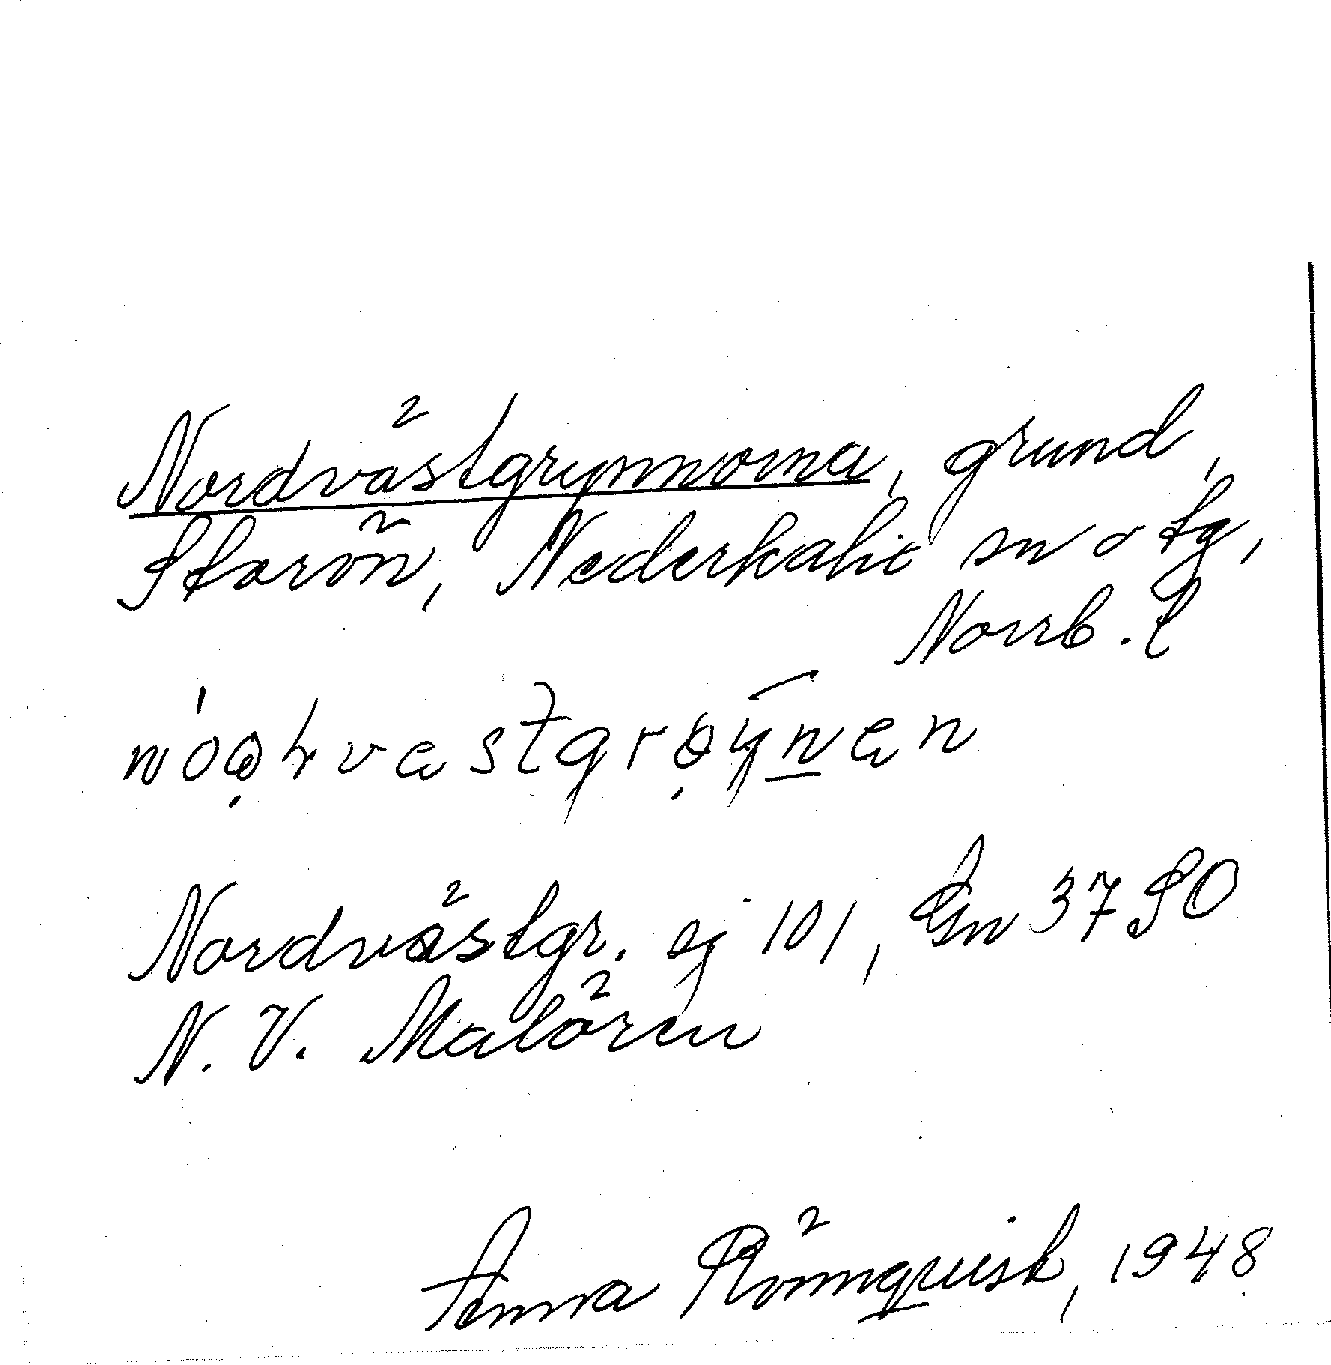 Nordvästgrynnorna, grund,
Storön, Nederkalix sn o tg,
Norrb. l
Nordvästgr. ej 101, Gn 3790
N. V. Malören
Anna Rönnquist, 1948